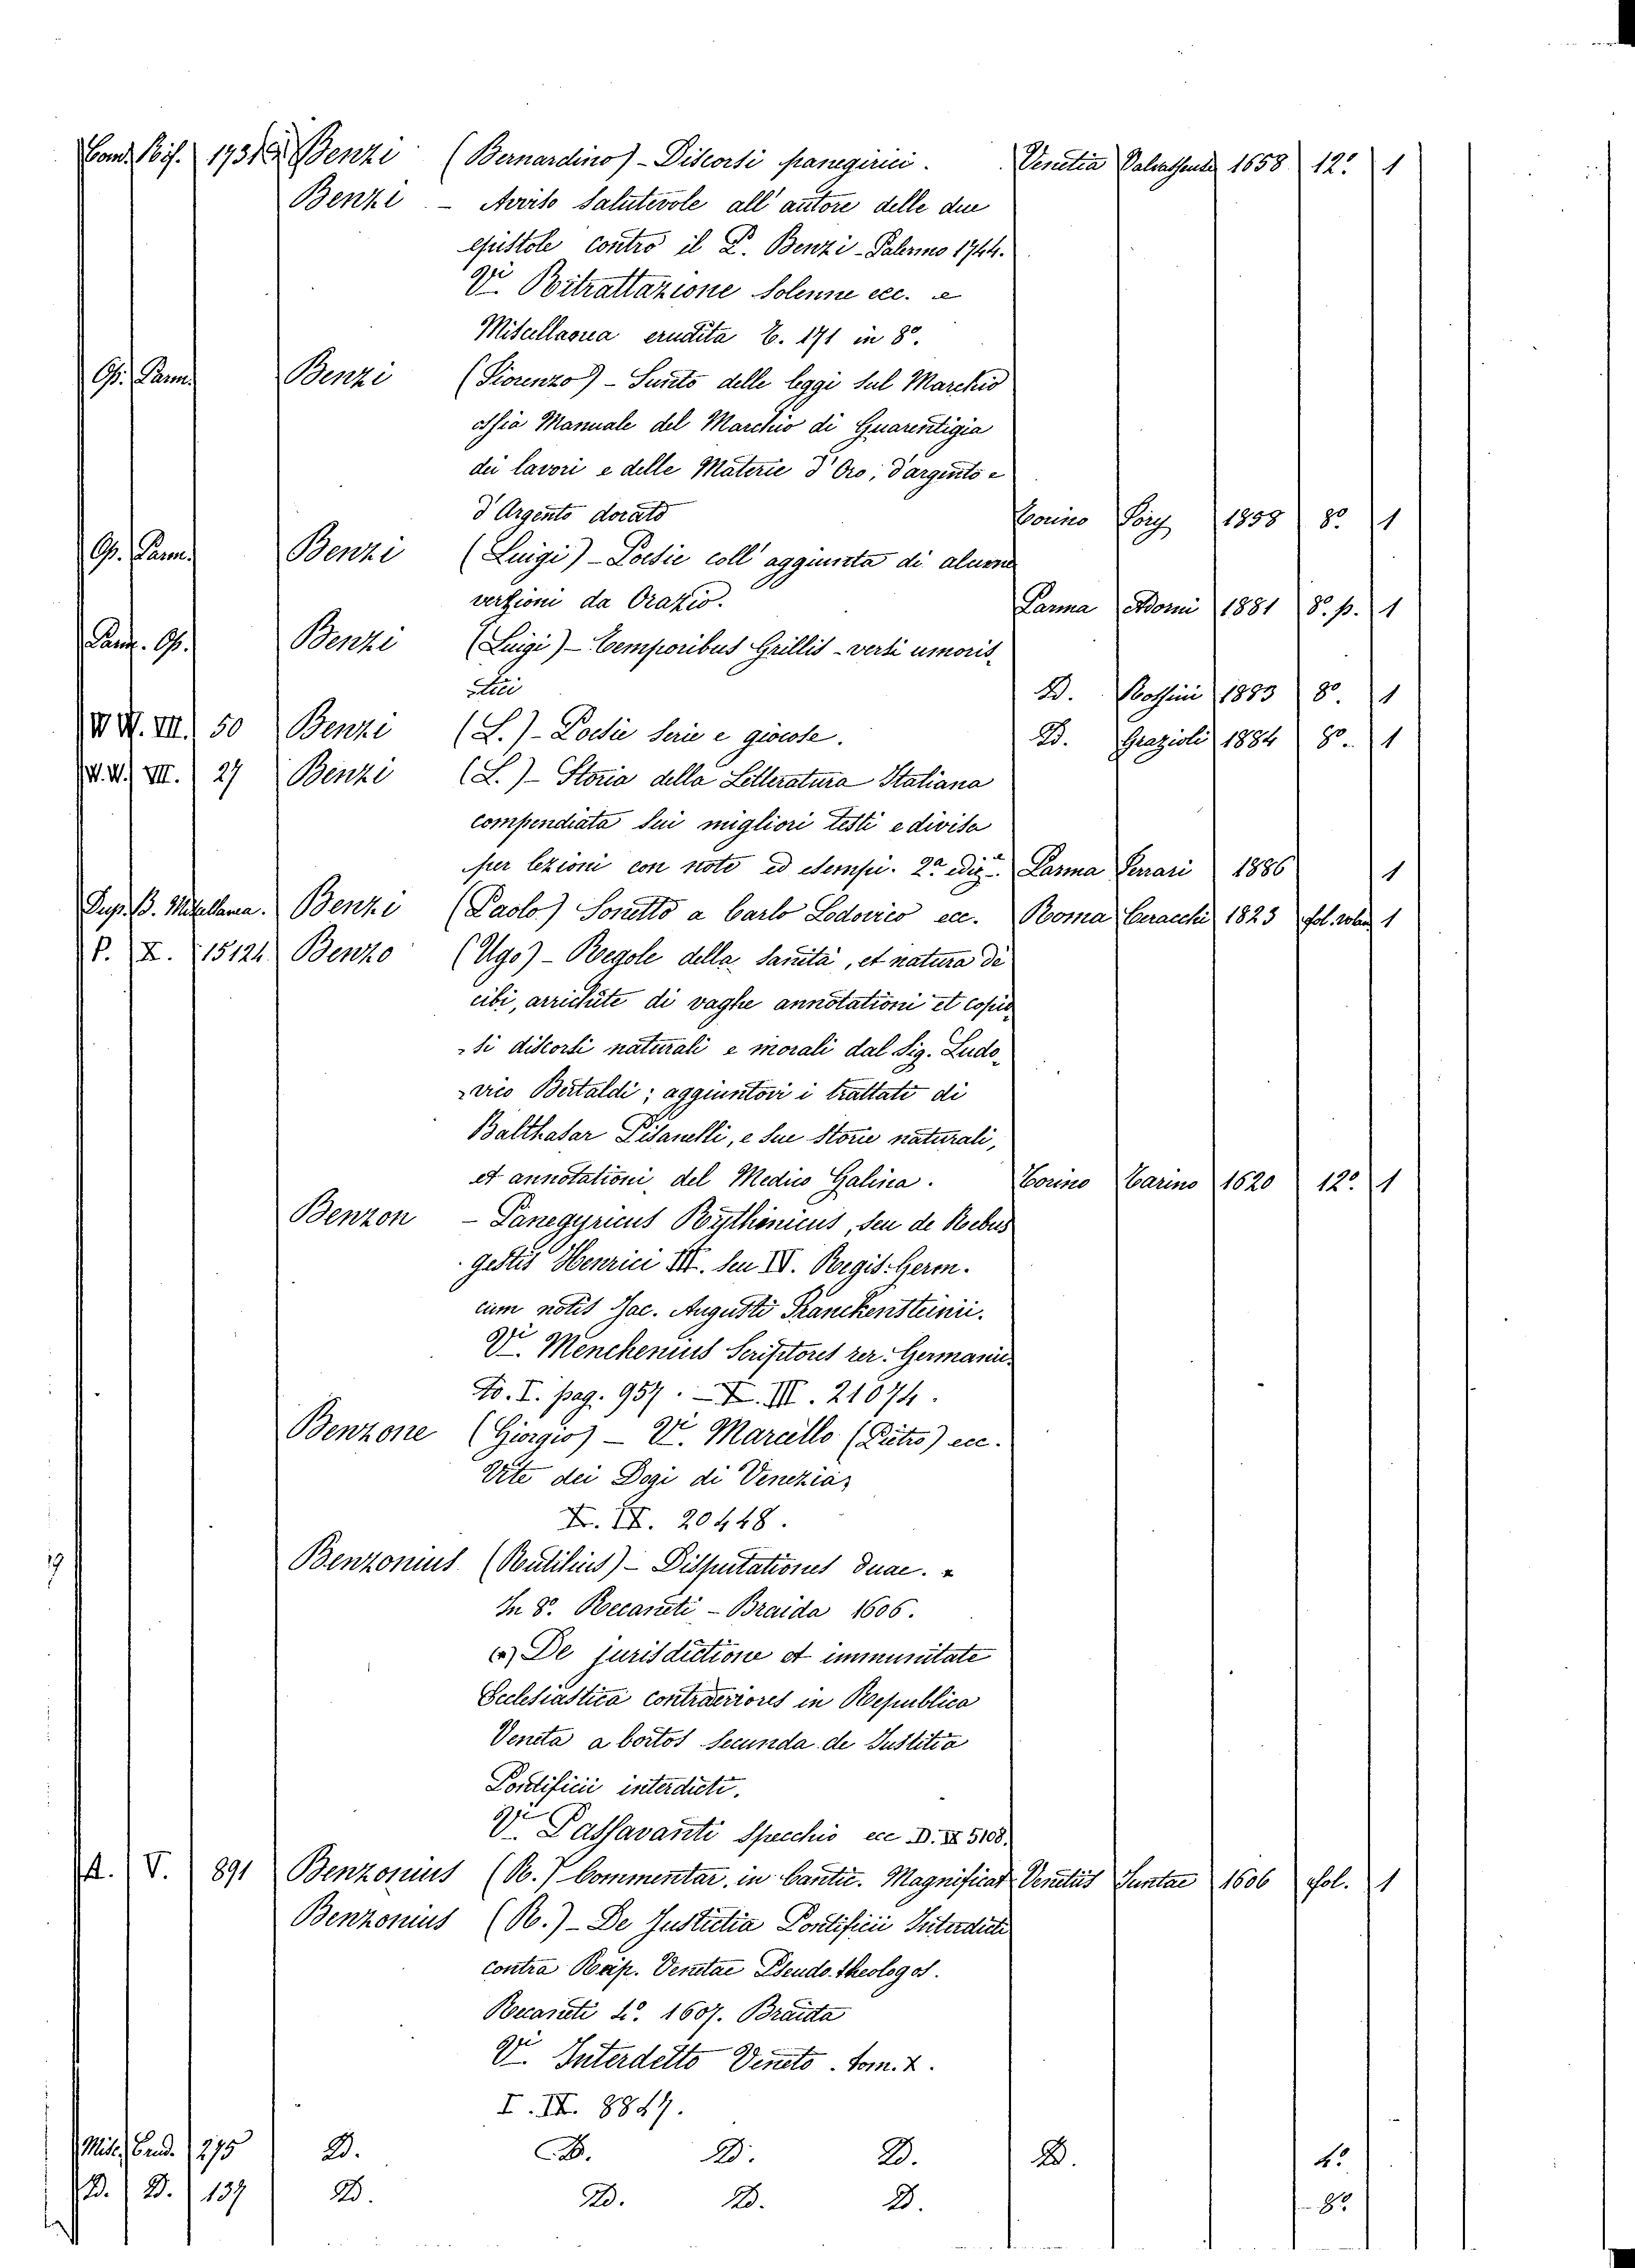 17318 Benzi (Bernardino) - Discorsi panegirici. Venetia Valvasense 1658 12° 1
Benzi - Avviso salutevole all' autore delle due
epistole contro il P. Benzi - Palermo 1744.
Vi Ritrattazione solenne ecc. e
Miscellanea erudita E. 171 in 8°.
Op. Parm. Benzi (Fiorenzo) - Sunto delle leggi sul Marchio
ossia Manuale del Marchio di Guarentigia
dei lavori e delle Materie d' Oro, d'argento e
d' Argento dorato Torino Pory 1858 8° 1
Op. Parm. Benzi (Luigi) - Poesie coll' aggiunta di alcune
versioni da Orazio. Parma Adorni 1881 8° p. 1
Parm. Op. Benzi (Luigi) - Temporibus Grillis - versi umoris-
stici D. Rossini 1883 8° 1
WW. VII. 50 Benzi (L.) - Poesie serie e giocose. D. Grazioli 1884 8° 1
W.W. VII. 27 Benzi (L.) - Storia della Letteratura Italiana
compendiata sui migliori testi e divisa
per lezioni con note ed esempi. 2ª edizᵉ. Parma Ferrari 1886 1
Dup. B. Miscellanea. Benzi (Paolo) Sonetto a Carlo Lodovico ecc. Roma Ceracchi 1823 fol. volan 1
P. X. 15124 Benzo (Ugo) - Regole della sanità, et natura de
cibi, arrichite di vaghe annotationi et copio-
-si discorsi naturali e morali dal Sig. Ludo-
-vico Bertaldi; aggiuntovi i trattati di
Balthasar Pisanelli, e sue storie naturali,
et annotationi del Medico Galina. Torino Tarino 1620 12° 1
Benzon - Panegyricus Rythinicus, seu de Rebus
gestis Henrici III. seu IV. Regis. Germ.
cum notis Jac. Augusti Franckensteinii.
Vi Menchenius Scriptores rer. Germanic.
To. I. pag. 957. - X. III. 21074.
Benzone (Giorgio) - Vi Marcello (Pietro) ecc.
Vite dei Dogi di Venezia,
X. IX. 20448.
19
Benzonius (Rutilius) - Disputationes duae. *
In 8°. Recaneti - Braida 1606.
(*) De jurisdictione et immunitate
Ecclesiastica contraveriores in Republica
Veneta a bortos secunda de Justitia
Pontificii interdicti.
Vi Passavanti Specchio ecc D. IX 5108.
A. V. 891 Benzonius (R.) Commentar. in Cantic. Magnificat Venetiis Juntae 1606 fol. 1
Benzonius (R.) - De Justitia Pontificii Interdicti
contra Reip. Venetae Pseudo. theologos.
Recaneti 4°. 1607. Braida
Vi Interdetto Veneto. tom. 2.
I. IX. 8847.
Misc. Erud. 275 D. D. D. D. D. 4°
D. D. 137 D. D. D. D. 8°